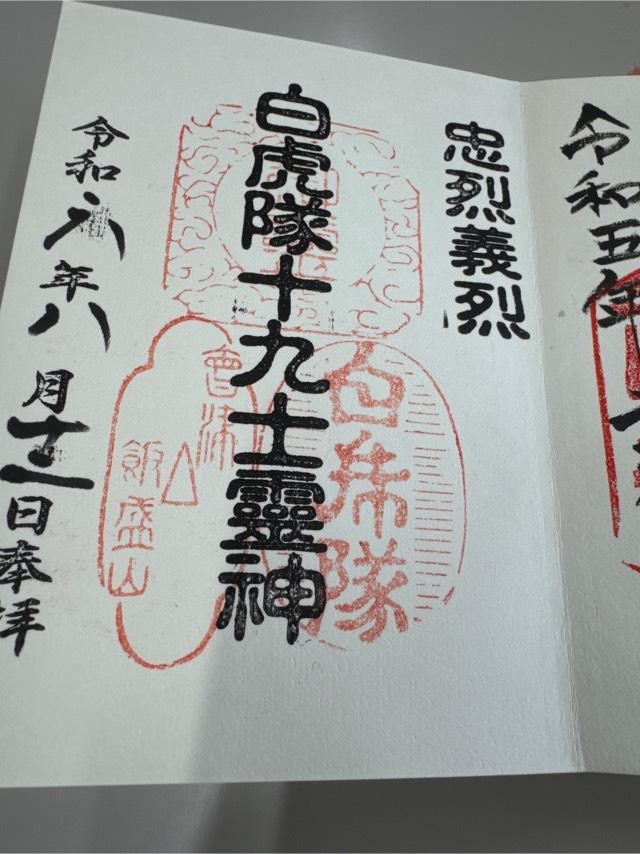 令和五年
忠烈義烈
白虎隊十九士靈神
白虎隊
會津
飯盛山
令和六年八月十二日奉拝